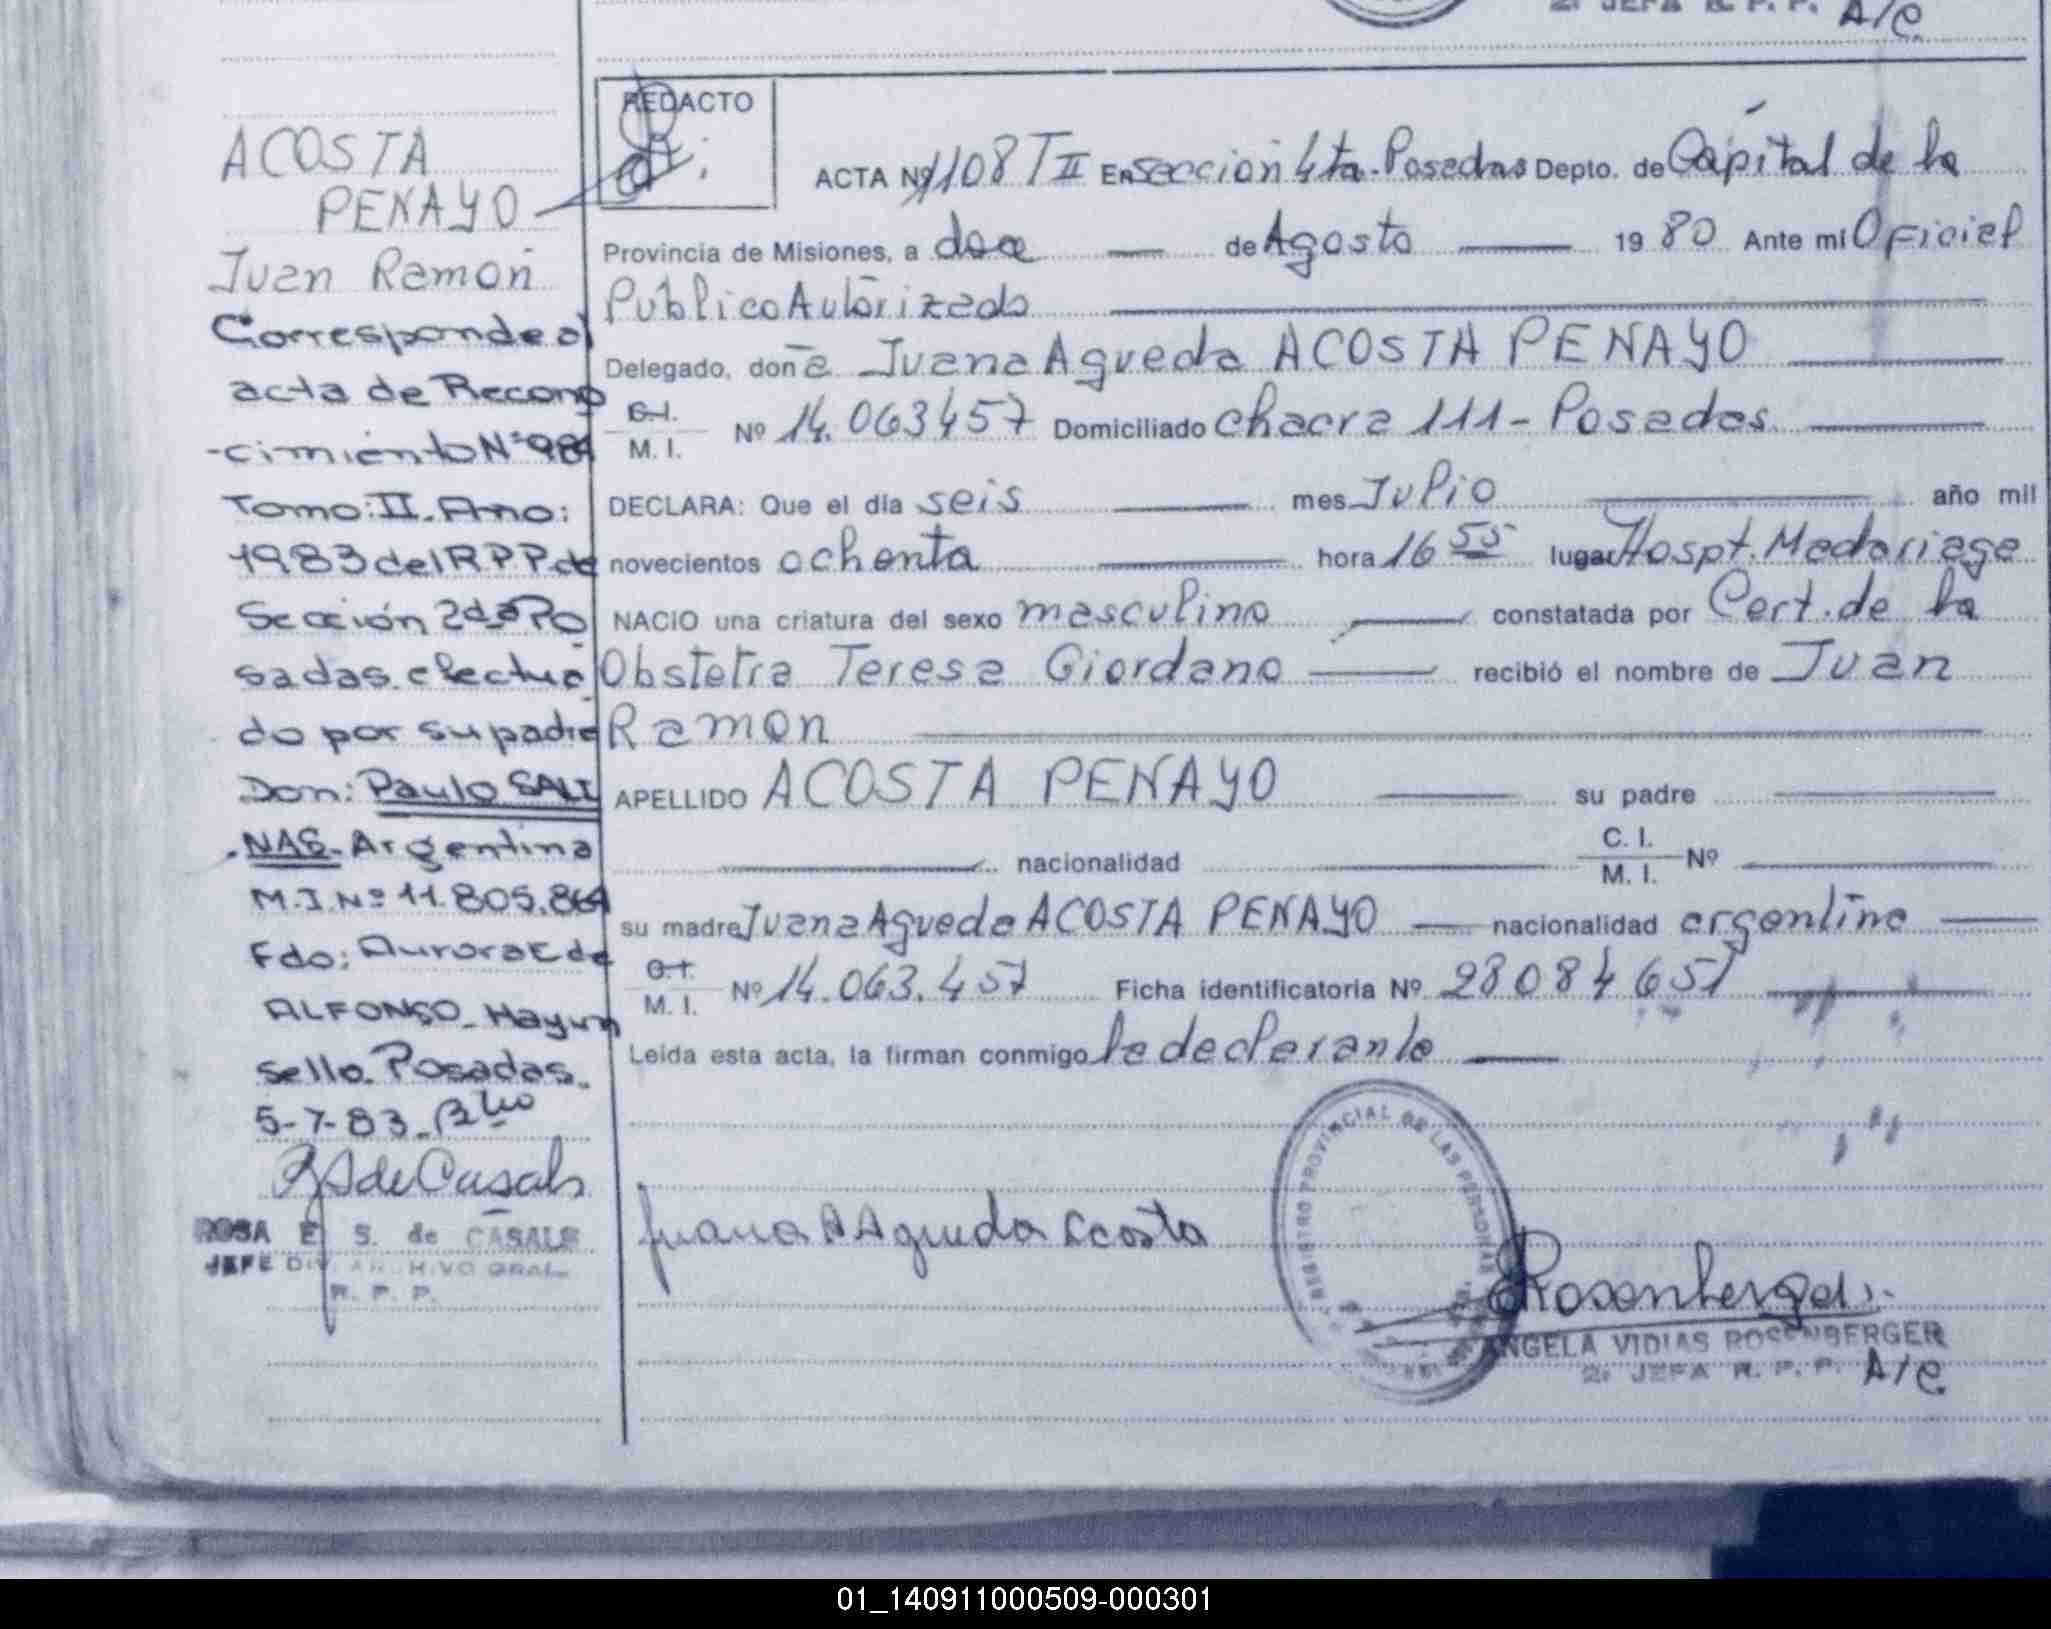 2º JEFA R. P. P. A/C.
REDACTO
ACOSTA
PENAYO
Juan Ramón
Corresponde al
acta de Recono
-cimiento Nº 984
Tomo: II. Año:
1983 del R.P.P. de
Sección 2da Po
sadas. efectua
do por su padre
Don: Paulo SALI
NAS- Argentina
M.I. Nº 11.805.864
Fdo: Aurora E de
ALFONSO- Hay un
sello. Posadas.
5-7-83.
R S de Casals
ROSA E S. de CASALS
JEFE DIV. ARCHIVO GRAL.
R. P. P.
ACTA Nº 1108 T II En sección 4ta. Posadas Depto. de Capital de la
Provincia de Misiones, a doce de Agosto 19 80 Ante mi Oficial
Publico Autorizado
Delegado, don a Juana Agueda ACOSTA PENAYO
C. I.
M. I. Nº 14.063457 Domiciliado chacra 111- Posadas
DECLARA: Que el día seis mes Julio año mil
novecientos ochenta hora 16 55 lugar Hospt. Madariaga
NACIO una criatura del sexo masculino constatada por Cert. de la
Obstetra Teresa Giordano recibió el nombre de Juan
Ramon
APELLIDO ACOSTA PENAYO su padre
nacionalidad C. I.
M. I. Nº
su madre Juana Agueda ACOSTA PENAYO nacionalidad argentina
C. I.
M. I. Nº 14.063.457 Ficha identificatoria Nº 28084651
Leída esta acta, la firman conmigo la declarante
REGISTRO PROVINCIAL DE LAS PERSONAS
Juana A Agueda Acosta
Rosenberger
ANGELA VIDIAS ROSENBERGER
2º JEFA R. P. P. A/C.
01_140911000509-000301